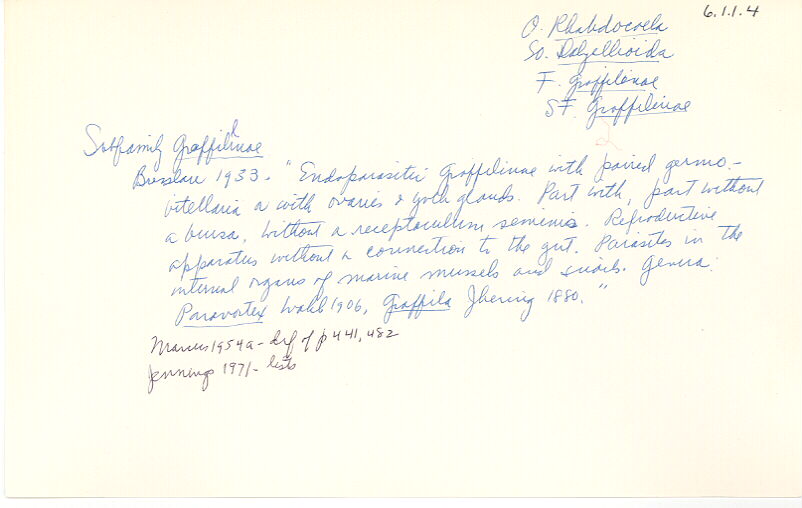 6.1.1.4
O. Rhabdocoela
SO. Dalyellioida
F. Graffilinae
SF. Graffilinae
Subfamily Graffilinae
Bresslau 1933. "Endoparasitic Graffilinae with paired germo-
vitellaria or with ovaries & yolk glands. Part with, part without
a bursa, without a receptaculum seminis. Reproductive
apparatus without a connection to the gut. Parasites in the
internal organs of marine mussels and snails. Genera:
Paravortex Wahl 1906, Graffila Jhering 1880."
Marcus 1954a - def of p 441, 482
Jennings 1971 - lists